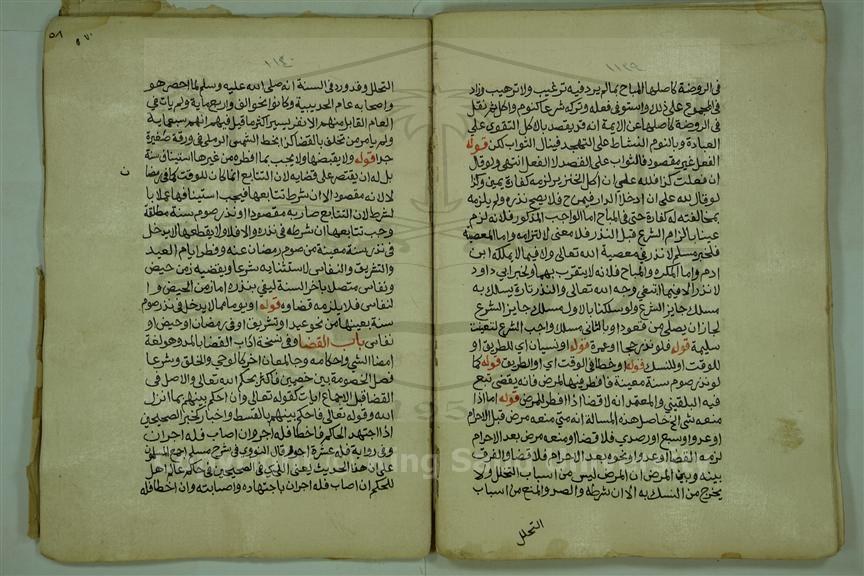 ١١٣٩
في الروضة كاصلها المباح بما لم يرد فيه ترغيب ولا ترهيب وزاد
في المجموع على ذلك واستوى فعله وتركه شرعا كنوم واكل نقل
في الروضة كاصلها عن الائمة انه قد يقصد بالاكل التقوى على
العبادة وبالنوم النشاط على التهجد فينال الثواب لكن قوله
الفعل غير مقصود فالثواب على القصد لا الفعل انتهى ولو قال
ان فعلت كذا فلله علي ان اكل الخبز يلزمه كفارة يمين وكذا
لو قال لله علي ان ادخل الدار فيمن فلا يصح نذره ولم يلزمه
بمخالفته له كفارة حتى في المباح اما الواجب المذكور فلانه لزم
عينا بالزام الشرع قبل النذر فلا معنى لالتزامه واما المعصية
فلخبر مسلم لا نذر في معصية الله تعالى ولا فيما لا يملكه ابن
ادم واما المكروه والمباح فلانه لا يتقرب بهما ولخبر ابي داود
لا نذر الا فيما ابتغي وجه الله تعالى والنذر تارة يسلك به
مسلك جايز الشرع ولو سلكنا بالاول مسلك جايز الشرع
لجاز ان يصلي من قعود او بالثاني مسلك واجب الشرع
سليمة قوله فلو نذر حجا او عمرة قوله او نسيان اي للطريق او
للوقت او للنسك قوله او خطا في الوقت اي او الطريق قوله كما
لو نذر صوم سنة معينة فافطر فيها المرض فانه يقضي تبع
فيه البلقيني والمعتمد انه لا قضا اذا افطر للمرض قوله اما اذا
منعه شي الخ حاصل هذه المسالة انه متى منعه مرض قبل الاحرام
او عدو او سبع او رصدي فلا قضا او منعه مرض بعد الاحرام
لزمه القضا او عدو او نحوه بعد الاحرام فلا قضا والفرق
بينه وبين المرض ان المرض ليس من اسباب التحلل ولا
يخرج من النسك به الا ان شرطه والصد والمنع من اسباب
التحلل
٥٨
٥٧٠
١١٤٠
التحلل وقد ورد في السنة انه صلى الله عليه وسلم لما احصر هو
واصحابه عام الحديبية وكانوا نحو الف واربعماية ولم يات في
العام القابل منهم الا نفر يسير اكثر ما قيل فيهم انهم سبعماية
ولم يامر من تخلف بالقضا كذا بخط الشمس الرملي في ورقة صغيرة
جدا قوله ولا يقبضها ولا يجب بما افطره من غيرها استيناف سنة
بل له ان يقتصر على قضايه لان التتابع انما كان للوقت كما في رمضا
لا لانه مقصود الا ان شرط تتابعها فيجب استينافها عملا با
لشرط لان التتابع صار به مقصودا او نذر صوم سنة مطلقة
وجب تتابعها ان شرطه في نذره والا فلا ولا يقطعها لا يدخل
في نذر سنة معينة من صوم رمضان عنه وفطر ايام العيد
والتشريق والنفاس لاستثنايه شرعا ويقضيه زمن حيض
ونفاس متصلا باخر السنة ليفي بنذره اما زمن الحيض وا
لنفاس فلا يلزمه قضاوه قوله او يوما مما لا يدخل في نذر صوم
سنة بعينها من نحو عيد او تشريق او في رمضان او حيض او
نفاس باب القضا وفي نسخة كتاب القضا بالمد وهو لغة
امضا الشي واحكامه وجا لمعان اخر كالوحي والخلق وشرعا
فصل الخصومة بين خصمين فاكثر بحكم الله تعالى والاصل في
القضا قبل الاجماع ايات كقوله تعالى وان احكم بينهم بما انزل
الله وقوله تعالى فاحكم بينهم بالقسط واخبار كخبر الصحيحين
اذا اجتهد الحاكم فاخطا فله اجر وان اصاب فله اجران
وفي رواية فله عشرة اجور قال النووي في شرح مسلم اجمع المسلمون
على ان هذا الحديث يعني الذي في الصحيحين في حاكم عالم اهل
للحكم ان اصاب فله اجران باجتهاده واصابته وان اخطا فله